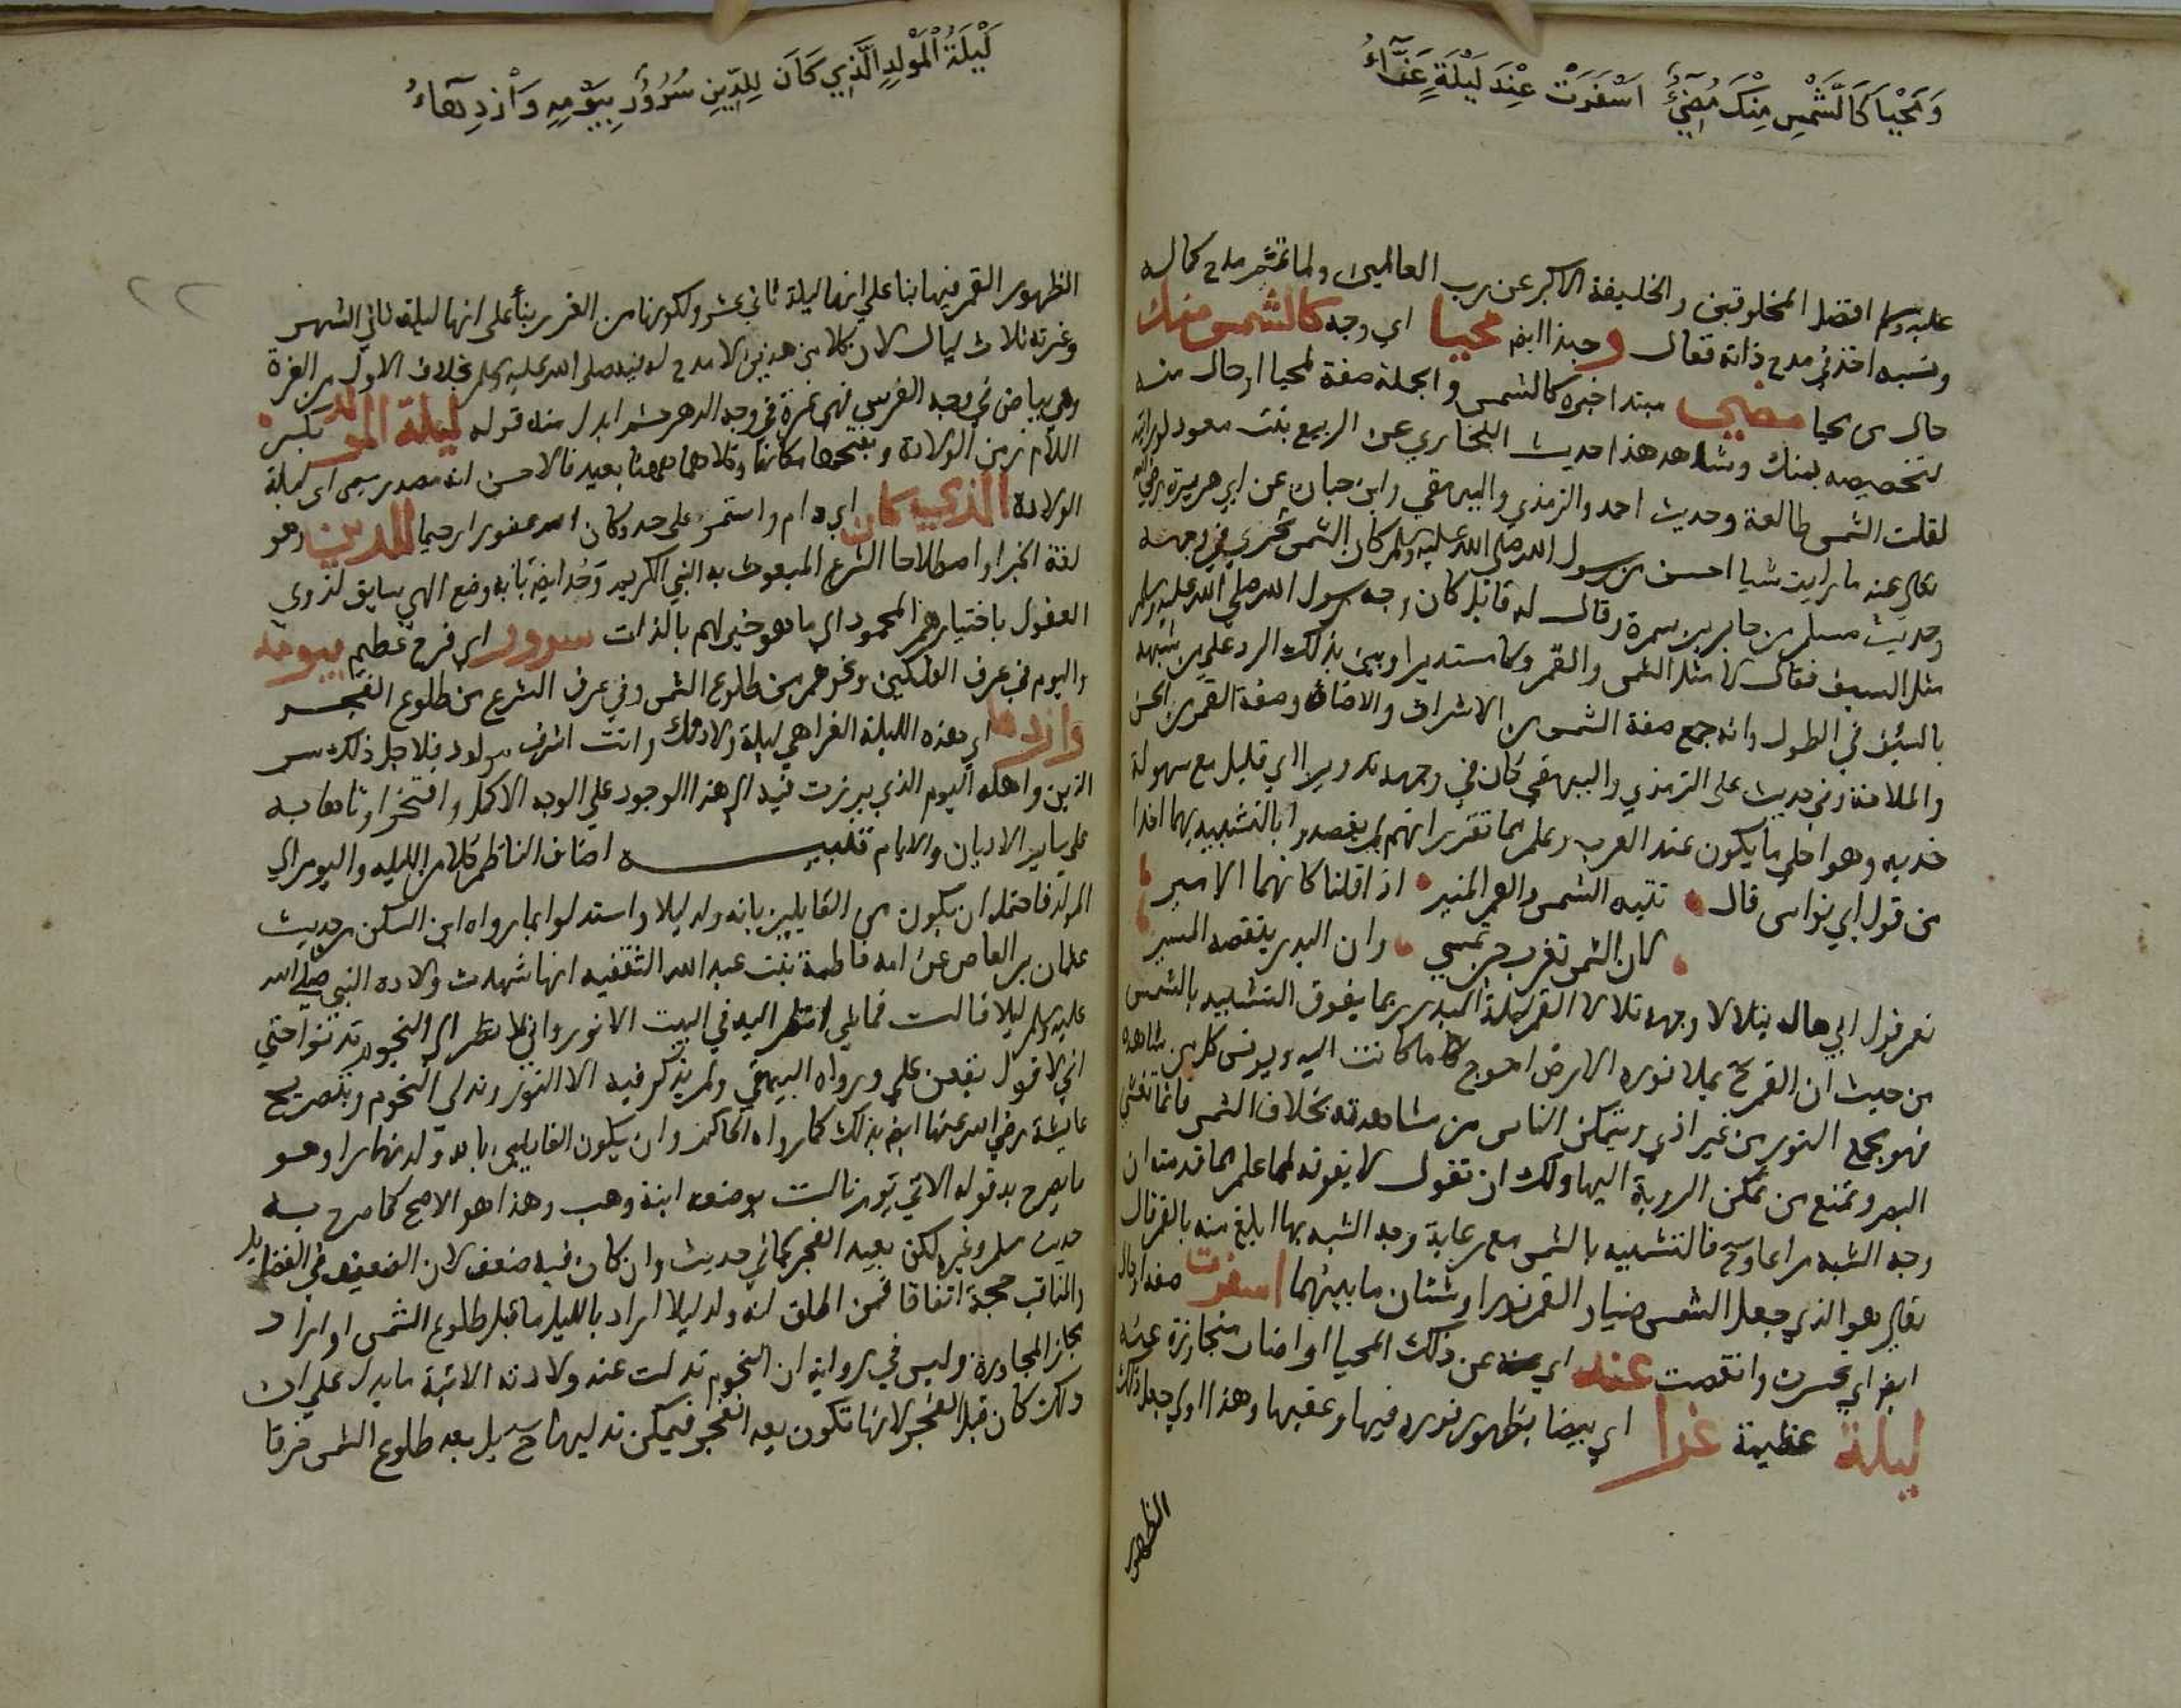 وَمُحَيَّا كَالشَّمْسِ مِنْكَ مُضِيْءٌ اَسْفَرَتْ عِنْدَ لَيْلَةٍ غَرَّآءُ
عليه وسلم افضل المخلوقين والخليفة الاكبر عن رب العالمين ولما تمم مدح كماله
ونسبه اخذ في مدح ذاته فقال وحبذا ايضا محيا اي وجه كالشمس منك
حال من محيا مضي مبتدا خبره كالشمس والجملة صفة لمحيا او حال منه
لتخصيصه بمنك وشاهد هذا حديث البخاري عن الربيع بنت معود لو رايته
لقلت الشمس طالعة وحديث احمد والترمذي والبيهقي وابن حبان عن ابي هريرة رضي الله
تعالى عنه ما رايت شيا احسن من رسول الله صلى الله عليه وسلم كان الشمس تجري في وجهه
وحديث مسلم من جابر بن سمرة وقال له قايل كان وجه رسول الله صلى الله عليه وسلم
مثل السيف فقال لا مثل الشمس والقمر وكا مستديرا وبين بذلك الرد على من شبهه
بالسيف في الطول وانه جمع صفة الشمس من الاشراق والاضاة وصفة القمر من الحسن
والملاحة وفي حديث على الترمذي والبيهقي كان في وجهه تدويرا اي قليل مع سهولة
خديه وهو احلى ما يكون عند العرب وعلم مما تقرر انهم لم يقصدوا بالتشبيه بهما افذا
من قول ابي نواس قال تتيه الشمس والقمر المنير اذا قلنا كانهما الامير
لان الشمس تغرب حين تمسي وان البدر ينقصه المسير
نعم قول ابي هاله يتلالا وجهه تلالا القمر ليلة البدر ربما يفوق التشبيه بالشمس
من حيث ان القمر ح يملا نوره الارض احوج ما كانت اليه ويونس كل من شاهده
فهو يجمع النور من غير اذي ويتمكن الناس من مشاهدته بخلاف الشمس فانها تغشي
البصر وتمنع من تمكن الروية اليها ولك ان تقول لا يفوته لما علم مما قدمته ان
وجه الشبه مراعا وح فالتشبيه بالشمس مع رعاية وجه الشبه بها ابلغ منه بالقمر قال
تعالى هو الذي جعل الشمس ضيا والقمر نورا وشتان ما بينهما اسفرت صفة او حال
ايضا اي محسرت وانقصت عنه اي عن ذلك المحيا او اضات متجاوزة عنه
ليلة عظيمة غرا اي بيضا بظهور نوره فيها وعقبها وهذا اولى جعل ذلك
الظهور
لَيْلَةُ الْمَوْلِدِ الَّذِي كَانَ لِلدِّينِ سُرُوْرٌ بِيَوْمِهِ وَازْدِهَآءُ
٢٢
الظهور القمر فيها بنا على انها ليلة ثاني عشر ولكونها من الغرر بنا على انها ليلة ثاني الشهر
وغرته ثلاث ليال لان كلا من هذين لا مدح له فيه صلى الله عليه وسلم بخلاف الاول من الغرة
وهي بياض في وجه الفرس فهي غرة في وجه الدهر ثم ابدل منه قوله ليلة المولد بكسر
اللام زمن الولادة وبفتحها مكانها وكلاهما هنا بعيد فالاحسن انه مصدر ميمي اي ليلة
الولادة الذي كان اي دام واستمر على حد وكان الله غفورا رحيما للدين وهو
لغة الخبر او اصطلاحا الشرع المبعوث به النبي الكريم وحد ايضا بانه وضع الهي سايق لذوي
العقول باختيارهم المحمود الى ما هو خير لهم بالذات سرور اي فرح عظيم بيومه
واليوم في عرف الفلكيين ونحوهم من طلوع الشمس وفي عرف الشرع من طلوع الفجر
وازدها اي هذه الليلة الغرا هي ليلة ولادتك وانت اشرف مولود فلاجل ذلك سر
الدين واهله اليوم الذي برزت فيه الى هذا الوجود على الوجه الاكمل وافتخر اوتاها به
على ساير الاديان والايام تنبيه اضاف الناظم كلا من الليله واليوم الى
المولد فاحتمل ان يكون من القايلين بانه ولد ليلا واستدلوا بما رواه ابن السكن من حديث
عثمان بن العاص عن امه فاطمة بنت عبد الله الثقفيه انها شهدت ولادة النبي صلى الله
عليه وسلم ليلا قالت فما شي انظر اليه في البيت الا نور واني لا نظر الى النجوم تدنوا حتى
اني لاقول يقعن علي ورواه البيهقي ولم يذكر فيه الا النور وتدلي النجوم وبتصريح
عايشة رضي الله عنها ايضا بذلك كما رواه الحاكم وان يكون القايلين بانه ولد نهارا وهو
ما يصرح به قوله الاتي يوم نالت بوضعه ابنة وهب وهذا هو الاصح كما صرح به
حديث مسلم وغيره لكن بعيد الفجر كما في حديث وان كان فيه ضعف لان الضعيف في الفضايل
والمناقب حجة اتفاقا فمن اطلق انه ولد ليلا اراد بالليل ما قبل طلوع الشمس او اراد
مجاز المجاورة وليس في رواية ان النجوم تدلت عند ولادته الاتية ما يدل على ان
ذلك كان قبل الفجر لانها تكون بعد الفجر فيمكن تدليها ح بل بعد طلوع الشمس خرقا